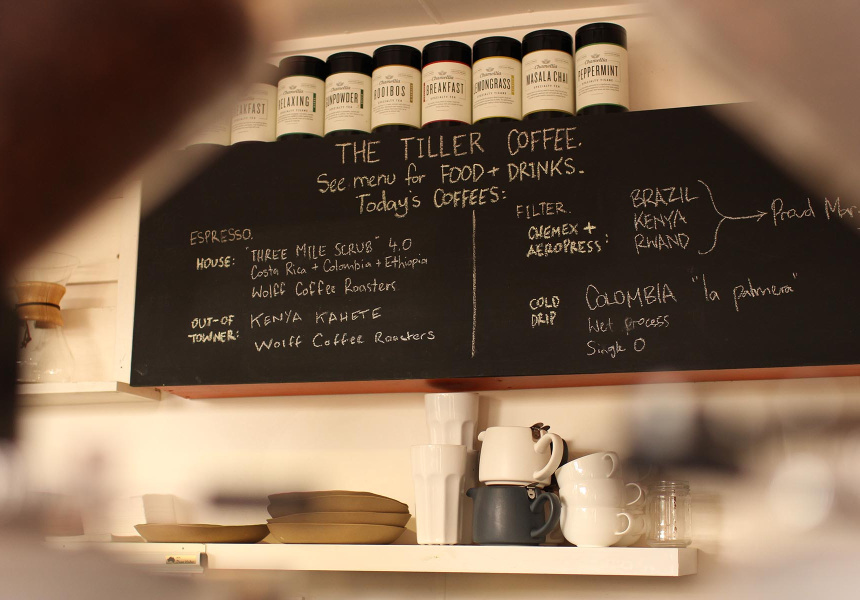 RELAXING
GUNPOWDER
ROOIBOS
BREAKFAST
LEMONGRASS
MASALA CHAI
PEPPERMINT
THE TILLER COFFEE.
See menu for FOOD + DRINKS.
Today's COFFEES:
ESPRESSO.
HOUSE: "THREE MILE SCRUB" 4.0
Costa Rica + Colombia + Ethiopia
Wolff Coffee Roasters
OUT-OF TOWNER: KENYA KAHETE
Wolff Coffee Roasters
FILTER.
CHEMEX + AEROPRESS:
BRAZIL
KENYA
RWAND
Proud Mar
COLD DRIP
COLOMBIA "la palmera"
Wet process
Single O